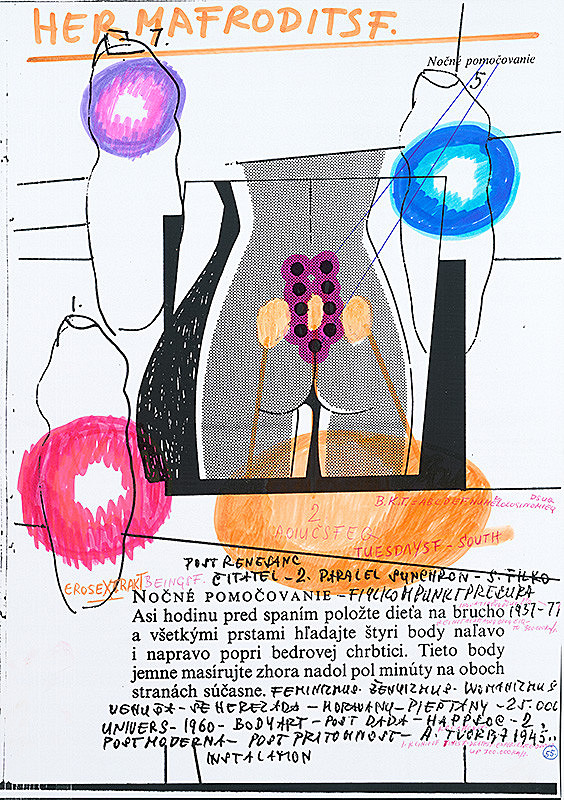 HERMAFRODITSF.
7.
Nočné pomočovanie
5
1.
2
AOIUČSFEQ
TUESDAYSF - SOUTH
POSTRENESANC
EROSEXTRAKT BEINGSF. ČITATEL - 2. PARALEL SYNCHRON - S. FILKO
NOČNÉ POMOČOVANIE - FILKOMPUNKTPRESURA
Asi hodinu pred spaním položte dieťa na brucho 1937-77
a všetkými prstami hľadajte štyri body naľavo
i napravo popri bedrovej chrbtici. Tieto body
jemne masírujte zhora nadol pol minúty na oboch
stranách súčasne. FEMINIZMUS - ŽENVIZMUS - WOMANIZMUS
VENUŠA - ŠEHEREZÁDA - MORAVANY - PIEŠŤANY - 25.000
UNIVERS - 1960 - BODYART - POST DADA - HAPPSOC - 2,
POSTMODERNA - POST PRITOMNOST - A. TVORBA 1945..
INSTALATION
55.